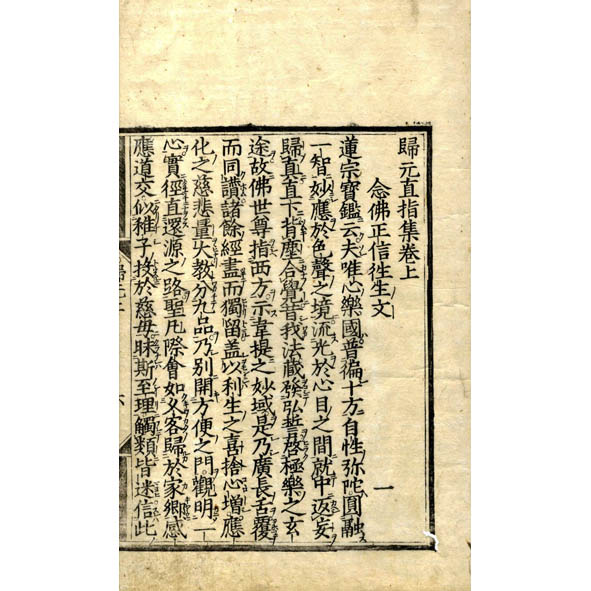 歸元直指集卷上
念佛正信徃生文 一
蓮宗寶鑑云夫唯心樂國普徧十方自性弥陀圓融
一智妙應於色聲之境流光於心目之間就中返妄
歸真直下背塵合覺昔我法藏發弘誓啓極樂之玄
途故佛世尊指西方示韋提之妙域是乃廣長舌覆
而同讚諸餘經盡而獨留盖以利生之喜捨心增應
化之慈悲量大教分九品乃別開方便之門觀明一
心實徑直還源之路聖凡際會如久客歸於家鄉感
應道交似稚子投於慈母昧斯至理觸類皆迷信此